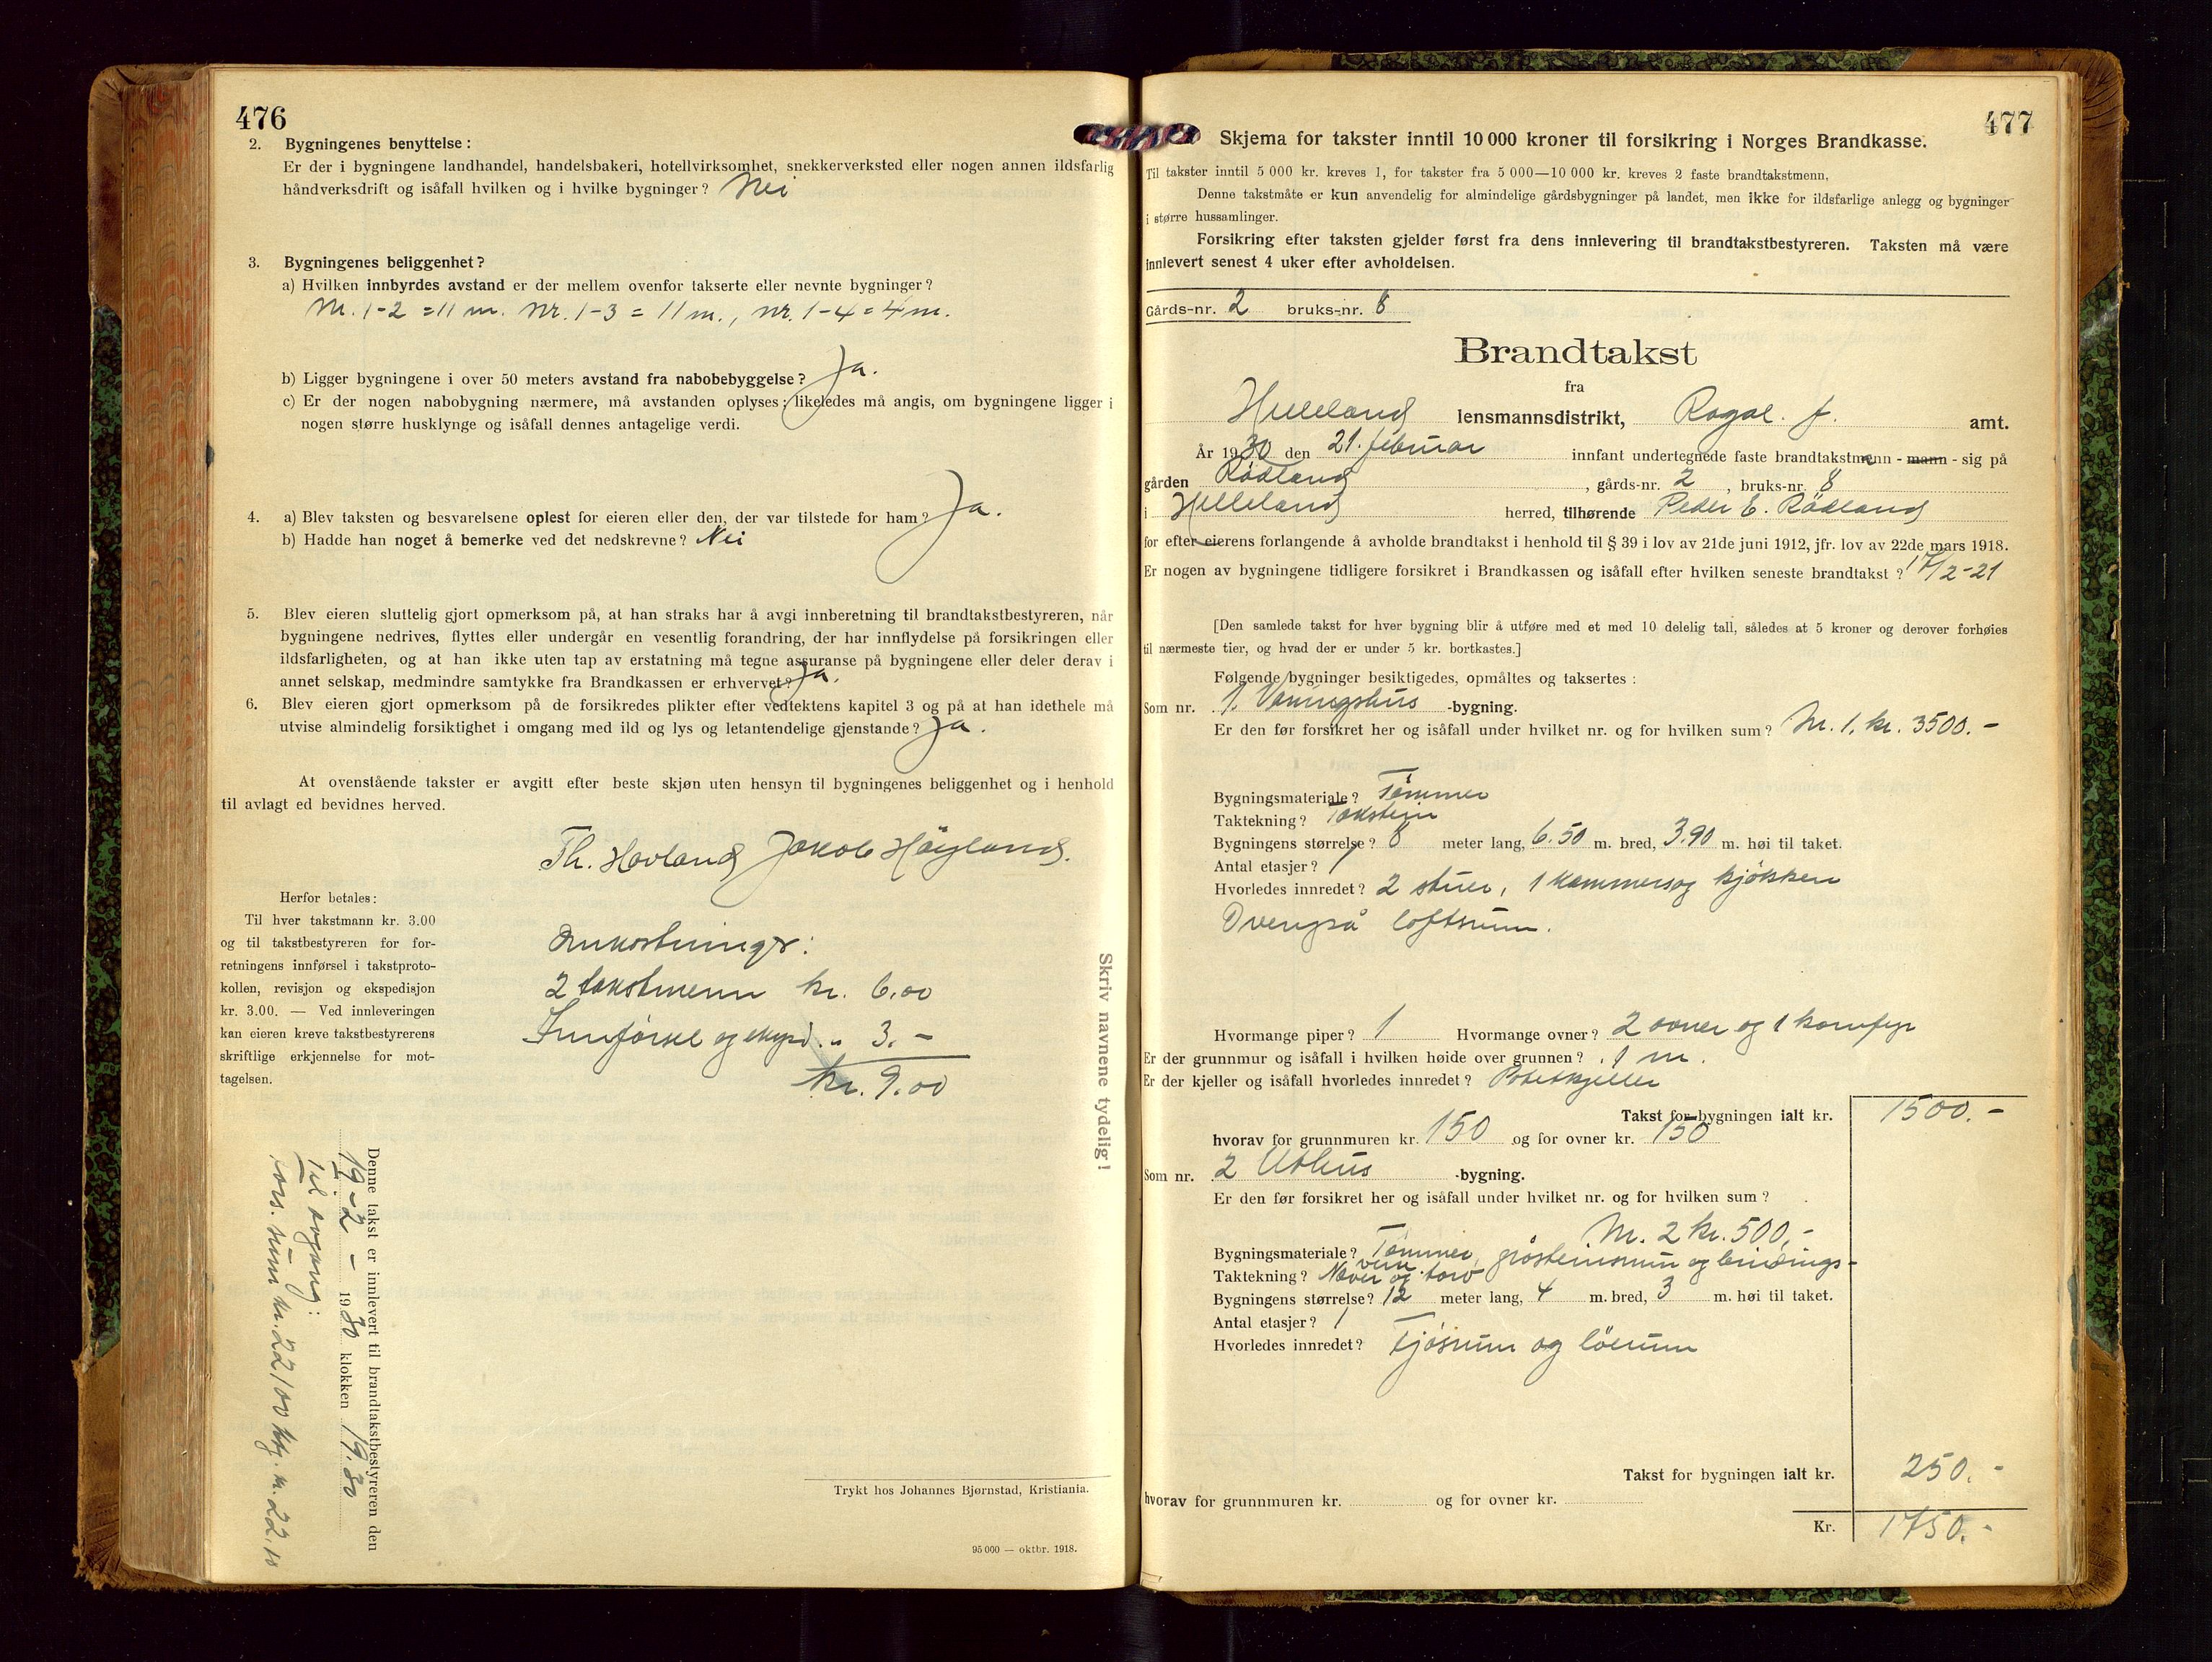 476
2. Bygningenes benyttelse:
Er der i bygningene landhandel, handelsbakeri, hotellvirksomhet, snekkerverksted eller nogen annen ildsfarlig
håndverksdrift og isåfall hvilken og i hvilke bygninger? Nei
3. Bygningenes beliggenhet?
a) Hvilken innbyrdes avstand er der mellem ovenfor takserte eller nevnte bygninger?
Nr. 1-2 = 11 m. Nr. 1-3 = 11 m., nr. 1-4 = 4 m.
b) Ligger bygningene i over 50 meters avstand fra nabobebyggelse? Ja.
c) Er der nogen nabobygning nærmere, må avstanden oplyses; likeledes må angis, om bygningene ligger i
nogen større husklynge og isåfall dennes antagelige verdi.
4. a) Blev taksten og besvarelsene oplest for eieren eller den, der var tilstede for ham? Ja.
b) Hadde han noget å bemerke ved det nedskrevne? Nei
5. Blev eieren sluttelig gjort opmerksom på, at han straks har å avgi innberetning til brandtakstbestyreren, når
bygningene nedrives, flyttes eller undergår en vesentlig forandring, der har innflydelse på forsikringen eller
ildsfarligheten, og at han ikke uten tap av erstatning må tegne assuranse på bygningene eller deler derav i
annet selskap, medmindre samtykke fra Brandkassen er erhvervet? Ja.
6. Blev eieren gjort opmerksom på de forsikredes plikter efter vedtektens kapitel 3 og på at han idethele må
utvise almindelig forsiktighet i omgang med ild og lys og letantendelige gjenstande? Ja.
At ovenstående takster er avgitt efter beste skjøn uten hensyn til bygningenes beliggenhet og i henhold
til avlagt ed bevidnes herved.
Th. Hovland Jakob Høyland.
Herfor betales:
Til hver takstmann kr. 3.00
og til takstbestyreren for for-
retningens innførsel i takstproto-
kollen, revisjon og ekspedisjon
kr. 3.00. — Ved innleveringen
kan eieren kreve takstbestyrerens
skriftlige erkjennelse for mot-
tagelsen.
Omkostninger:
2 takstmenn kr. 6,00
Innførsel og eksped. " 3.-
kr. 9.00
Skriv navnene tydelig!
Denne takst er innlevert til brandtakstbestyreren den
19-2 - 1930 klokken 19.30
Til avgang:
fors. sum kr. 22100
Trykt hos Johannes Bjørnstad, Kristiania.
95 000 — oktbr. 1918.
477
Skjema for takster inntil 10 000 kroner til forsikring i Norges Brandkasse.
Til takster inntil 5 000 kr. kreves 1, for takster fra 5 000—10 000 kr. kreves 2 faste brandtakstmenn.
Denne takstmåte er kun anvendelig for almindelige gårdsbygninger på landet, men ikke for ildsfarlige anlegg og bygninger
i større hussamlinger.
Forsikring efter taksten gjelder først fra dens innlevering til brandtakstbestyreren. Taksten må være
innlevert senest 4 uker efter avholdelsen.
Gårds-nr. 2 bruks-nr. 8
Brandtakst
fra
Helleland lensmannsdistrikt, Rogal. f. amt.
År 1930 den 21. februar innfant undertegnede faste brandtakstmenn - mann - sig på
gården Rødland, gårds-nr. 2, bruks-nr. 8
i Helleland herred, tilhørende Peder E. Rødland
for efter eierens forlangende å avholde brandtakst i henhold til § 39 i lov av 21de juni 1912, jfr. lov av 22de mars 1918.
Er nogen av bygningene tidligere forsikret i Brandkassen og isåfall efter hvilken seneste brandtakst? 17/2-21
[Den samlede takst for hver bygning blir å utføre med et med 10 delelig tall, således at 5 kroner og derover forhøies
til nærmeste tier, og hvad der er under 5 kr. bortkastes.]
Følgende bygninger besiktigedes, opmåltes og taksertes:
Som nr. 1. Våningshus -bygning.
Er den før forsikret her og isåfall under hvilket nr. og for hvilken sum? Nr. 1. kr. 3500.-
Bygningsmateriale? Tømmer
Taktekning? Takstein
Bygningens størrelse? 8 meter lang, 6.50 m. bred, 3.90 m. høi til taket.
Antal etasjer? 1
Hvorledes innredet? 2 stuer, 1 kammers og kjøkken
Ovenpå loftsrum.
Hvormange piper? 1 Hvormange ovner? 2 ovner og 1 komfyr
Er der grunnmur og isåfall i hvilken høide over grunnen? 1 m.
Er der kjeller og isåfall hvorledes innredet? Potetkjeller
Takst for bygningen ialt kr. 1500.-
hvorav for grunnmuren kr. 150 og for ovner kr. 150
Som nr. 2 Uthus -bygning.
Er den før forsikret her og isåfall under hvilket nr. og for hvilken sum?
Nr. 2 kr. 500,-
Bygningsmateriale? Tømmer, gråsteinsmur og bindings-
verk
Taktekning? Never og torv
Bygningens størrelse? 12 meter lang, 4 m. bred, 3 m. høi til taket.
Antal etasjer? 1
Hvorledes innredet? Fjøsrum og løerum
Takst for bygningen ialt kr. 250.-
hvorav for grunnmuren kr. og for ovner kr.
Kr. 1750.-